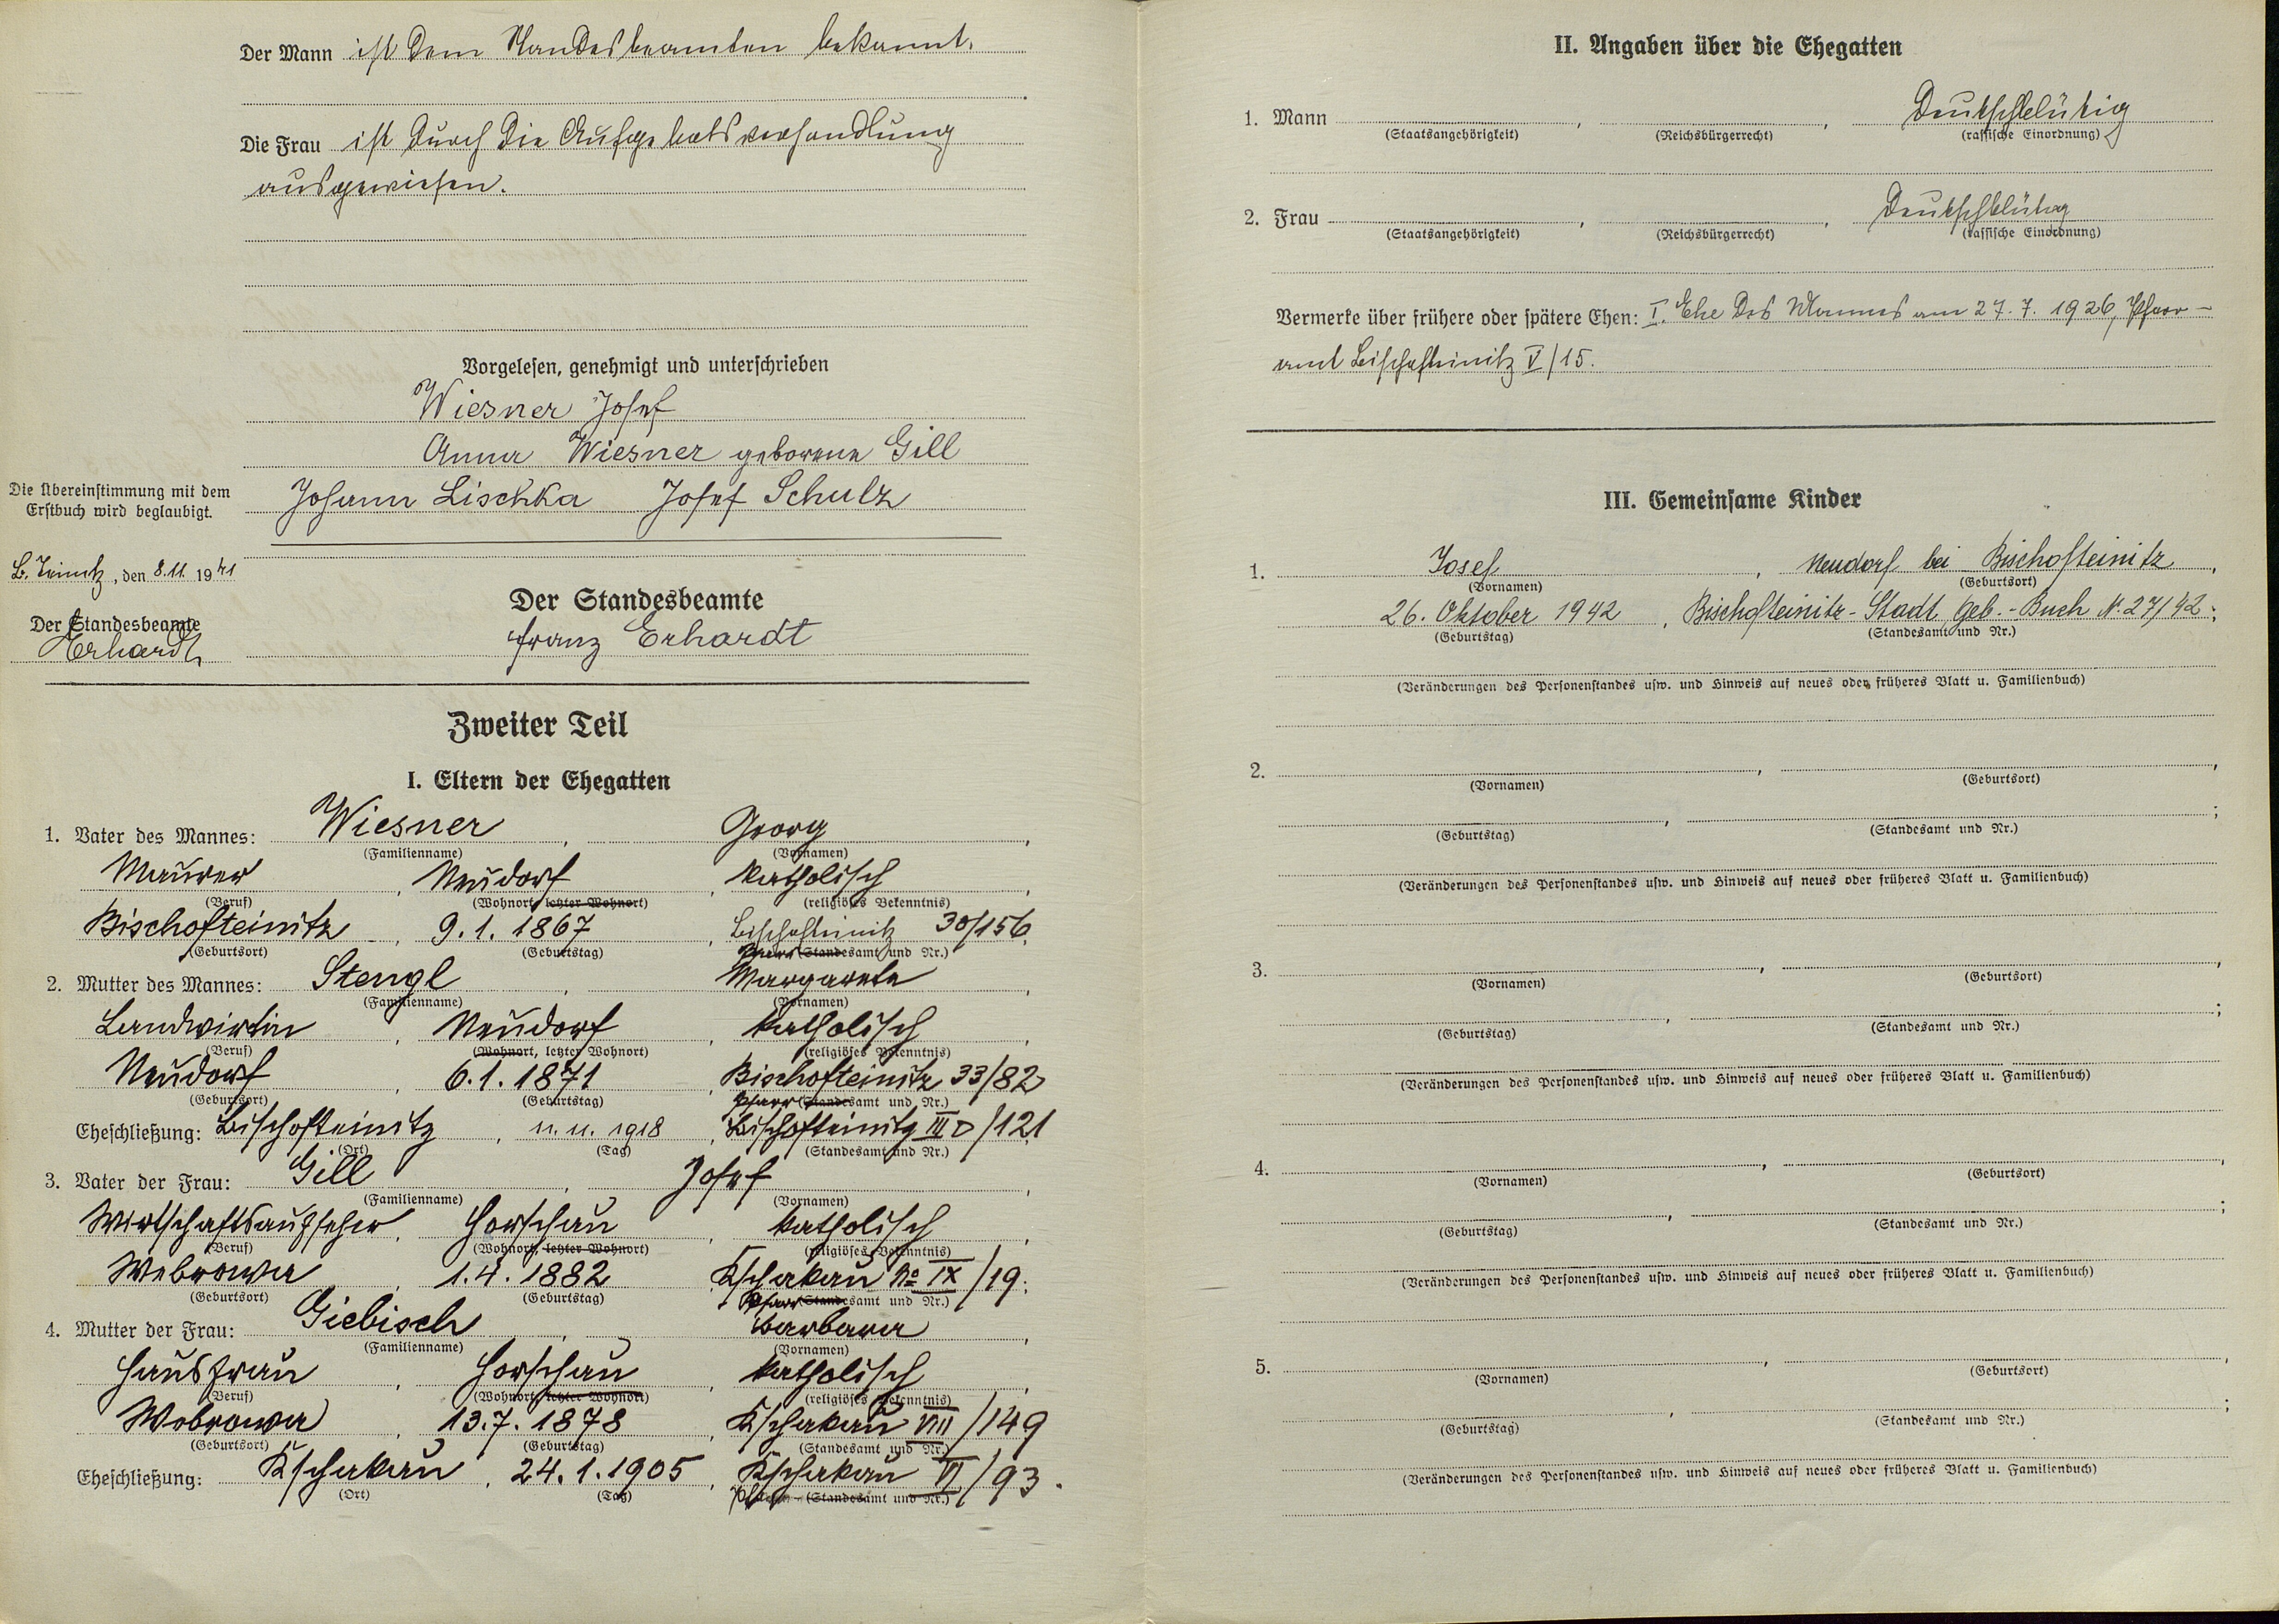 Der Mann ist dem Standesbeamten bekannt.
Die Frau ist durch die Aufgebotsverhandlung
ausgewiesen.
Vorgelesen, genehmigt und unterschrieben
Wiesner Josef
Anna Wiesner geborene Gill
Johann Lischka Josef Schulz
Die Übereinstimmung mit dem
Erstbuch wird beglaubigt.
B. Teinitz, den 8.11. 1941
Der Standesbeamte
Erhardt
Der Standesbeamte
Franz Erhardt
Zweiter Teil
I. Eltern der Ehegatten
1. Vater des Mannes: Wiesner, Georg,
(Familienname) (Vornamen)
Maurer, Neudorf, katholisch,
(Beruf) (Wohnort, letzter Wohnort) (religiöses Bekenntnis)
Bischofteinitz, 9.1.1867, Bischofteinitz 30/156.
(Geburtsort) (Geburtstag) Pfarr (Standesamt und Nr.)
2. Mutter des Mannes: Stengl, Margarete,
(Familienname) (Vornamen)
Landwirtin, Neudorf, katholisch,
(Beruf) (Wohnort, letzter Wohnort) (religiöses Bekenntnis)
Neudorf, 6.1.1871, Bischofteinitz 33/82
(Geburtsort) (Geburtstag) Pfarr (Standesamt und Nr.)
Eheschließung: Bischofteinitz, 11.11.1918, Bischofteinitz III D/121.
(Ort) (Tag) (Standesamt und Nr.)
3. Vater der Frau: Gill, Josef,
(Familienname) (Vornamen)
Wirtschaftsaufseher, Horschau, katholisch,
(Beruf) (Wohnort, letzter Wohnort) (religiöses Bekenntnis)
Webrowa, 1.4.1882, Kschakau No IX/19.
(Geburtsort) (Geburtstag) Pfarr (Standesamt und Nr.)
4. Mutter der Frau: Giebisch, Barbara,
(Familienname) (Vornamen)
Hausfrau, Horschau, katholisch,
(Beruf) (Wohnort, letzter Wohnort) (religiöses Bekenntnis)
Webrowa, 13.7.1878, Kschakau VIII/149
(Geburtsort) (Geburtstag) (Standesamt und Nr.)
Eheschließung: Kschakau, 24.1.1905, Kschakau VI/93.
(Ort) (Tag) (Standesamt und Nr.)
II. Angaben über die Ehegatten
1. Mann , , Deutschblütig
(Staatsangehörigkeit) (Reichsbürgerrecht) (rassische Einordnung)
2. Frau , , Deutschblütig
(Staatsangehörigkeit) (Reichsbürgerrecht) (rassische Einordnung)
Vermerke über frühere oder spätere Ehen: I. Ehe des Mannes am 27.7.1926, Pfarr-
amt Bischofteinitz V/15.
III. Gemeinsame Kinder
1. Josef, Neudorf bei Bischofteinitz,
(Vornamen) (Geburtsort)
26. Oktober 1942, Bischofteinitz-Stadt Geb.-Buch N. 27/42;
(Geburtstag) (Standesamt und Nr.)
(Veränderungen des Personenstandes usw. und Hinweis auf neues oder früheres Blatt u. Familienbuch)
2. , ,
(Vornamen) (Geburtsort)
, ;
(Geburtstag) (Standesamt und Nr.)
(Veränderungen des Personenstandes usw. und Hinweis auf neues oder früheres Blatt u. Familienbuch)
3. , ,
(Vornamen) (Geburtsort)
, ;
(Geburtstag) (Standesamt und Nr.)
(Veränderungen des Personenstandes usw. und Hinweis auf neues oder früheres Blatt u. Familienbuch)
4. , ,
(Vornamen) (Geburtsort)
, ;
(Geburtstag) (Standesamt und Nr.)
(Veränderungen des Personenstandes usw. und Hinweis auf neues oder früheres Blatt u. Familienbuch)
5. , ,
(Vornamen) (Geburtsort)
, ;
(Geburtstag) (Standesamt und Nr.)
(Veränderungen des Personenstandes usw. und Hinweis auf neues oder früheres Blatt u. Familienbuch)